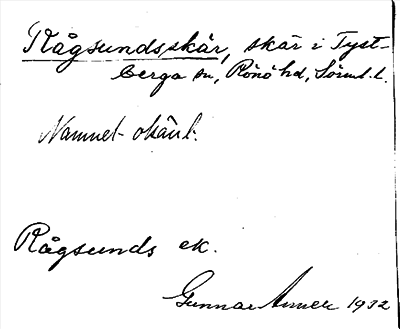 Rågsundsskär, skär i Tyst-
berga sn, Rönö hd, Sörml. l.
Namnet okänt.
Rågsunds ek.
Gunnar Arner 1932